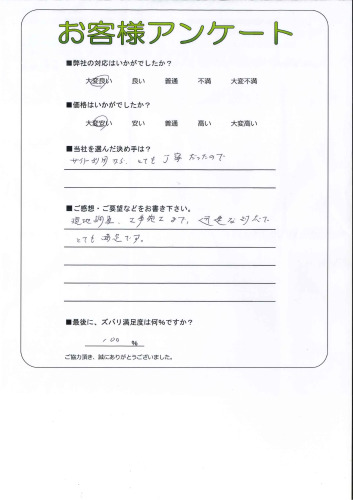 お客様アンケート
■弊社の対応はいかがでしたか?
大変良い 良い 普通 不満 大変不満
■価格はいかがでしたか?
大変安い 安い 普通 高い 大変高い
■当社を選んだ決め手は?
とても丁寧だったので
■ご感想・ご要望などをお書き下さい。
現地調査、工事完工まで、迅速な対応で
とても満足です。
■最後に、ズバリ満足度は何%ですか?
100 %
ご協力頂き、誠にありがとうございました。